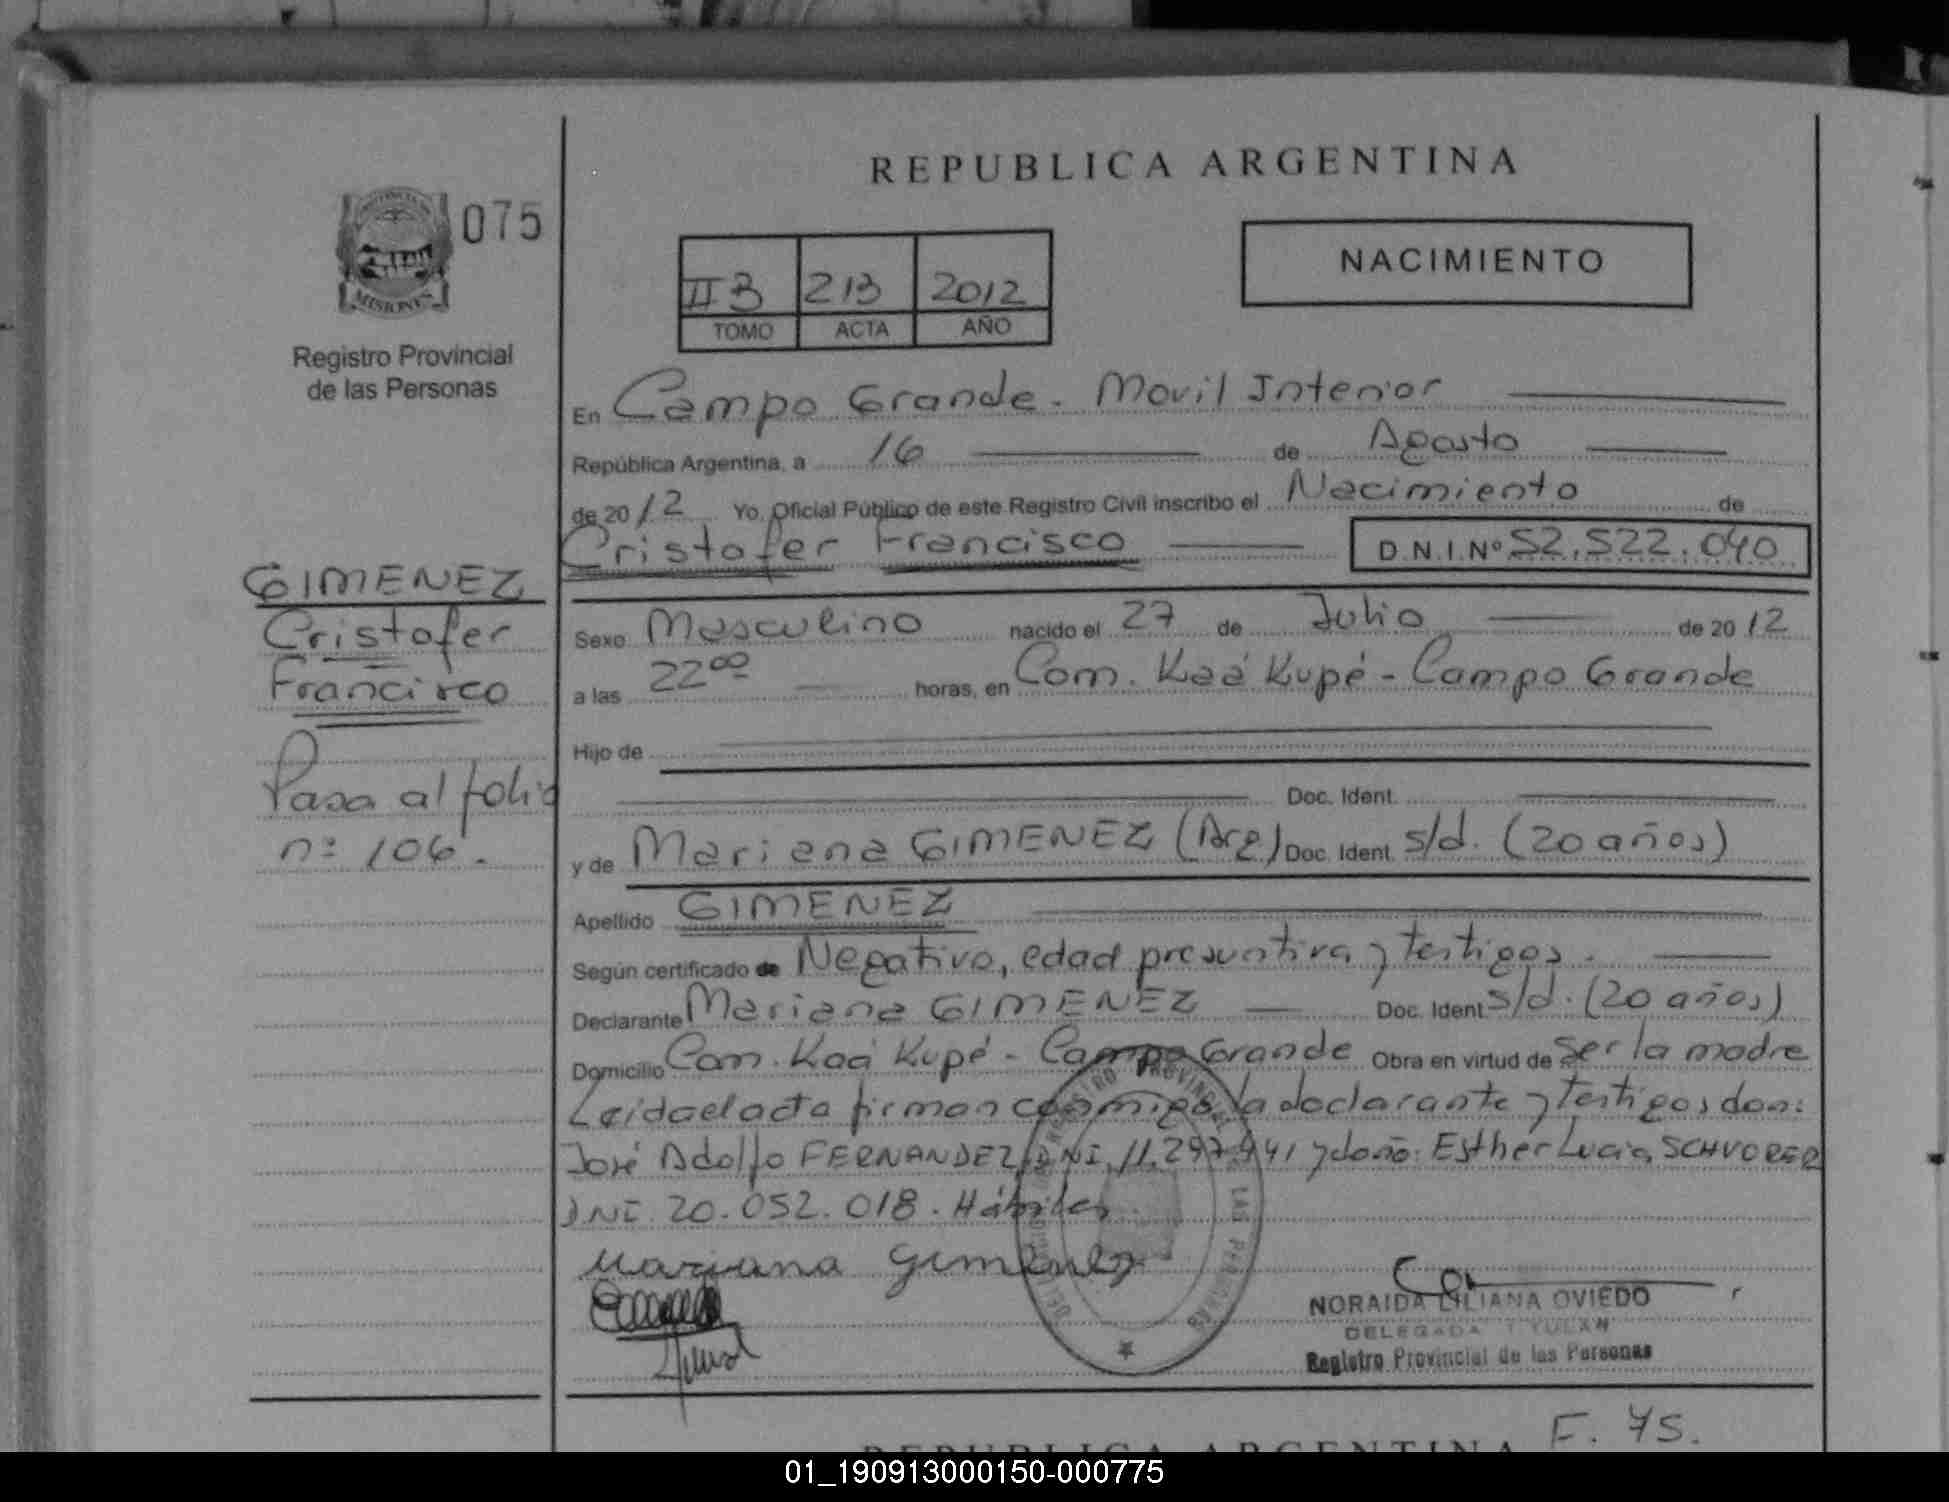 REPUBLICA ARGENTINA
MISIONES
075
II B 213 2012
TOMO ACTA AÑO
NACIMIENTO
Registro Provincial
de las Personas
En Campo Grande. Movil Interior
República Argentina, a 16 de Agosto
de 2012 Yo, Oficial Público de este Registro Civil inscribo el Nacimiento de
Cristofer Francisco D.N.I.Nº 52.522.040
GIMENEZ
Cristofer
Francisco
Pasa al folio
nº 106.
Sexo Masculino nacido el 27 de Julio de 2012
a las 22⁰⁰ horas, en Com. Kaá Kupé - Campo Grande
Hijo de
Doc. Ident.
y de Mariana GIMENEZ (Arg) Doc. Ident. s/d. (20 años)
Apellido GIMENEZ
Según certificado de Negativo, edad presuntiva y testigos.
Declarante Mariana GIMENEZ Doc. Ident s/d. (20 años)
Domicilio Com. Kaá Kupé - Campo Grande Obra en virtud de Ser la madre
Leida el acta firman conmigo la declarante y testigos don:
José Adolfo FERNANDEZ, DNI. 11.297.941 y doña: Esther Lucia SCHVORER
DNI. 20.052.018. Hábiles
Mariana Gimenez
REGISTRO PROVINCIAL DE LAS PERSONAS
NORAIDA LILIANA OVIEDO
DELEGADA
Registro Provincial de las Personas
F. 75.
REPUBLICA ARGENTINA
01_190913000150-000775